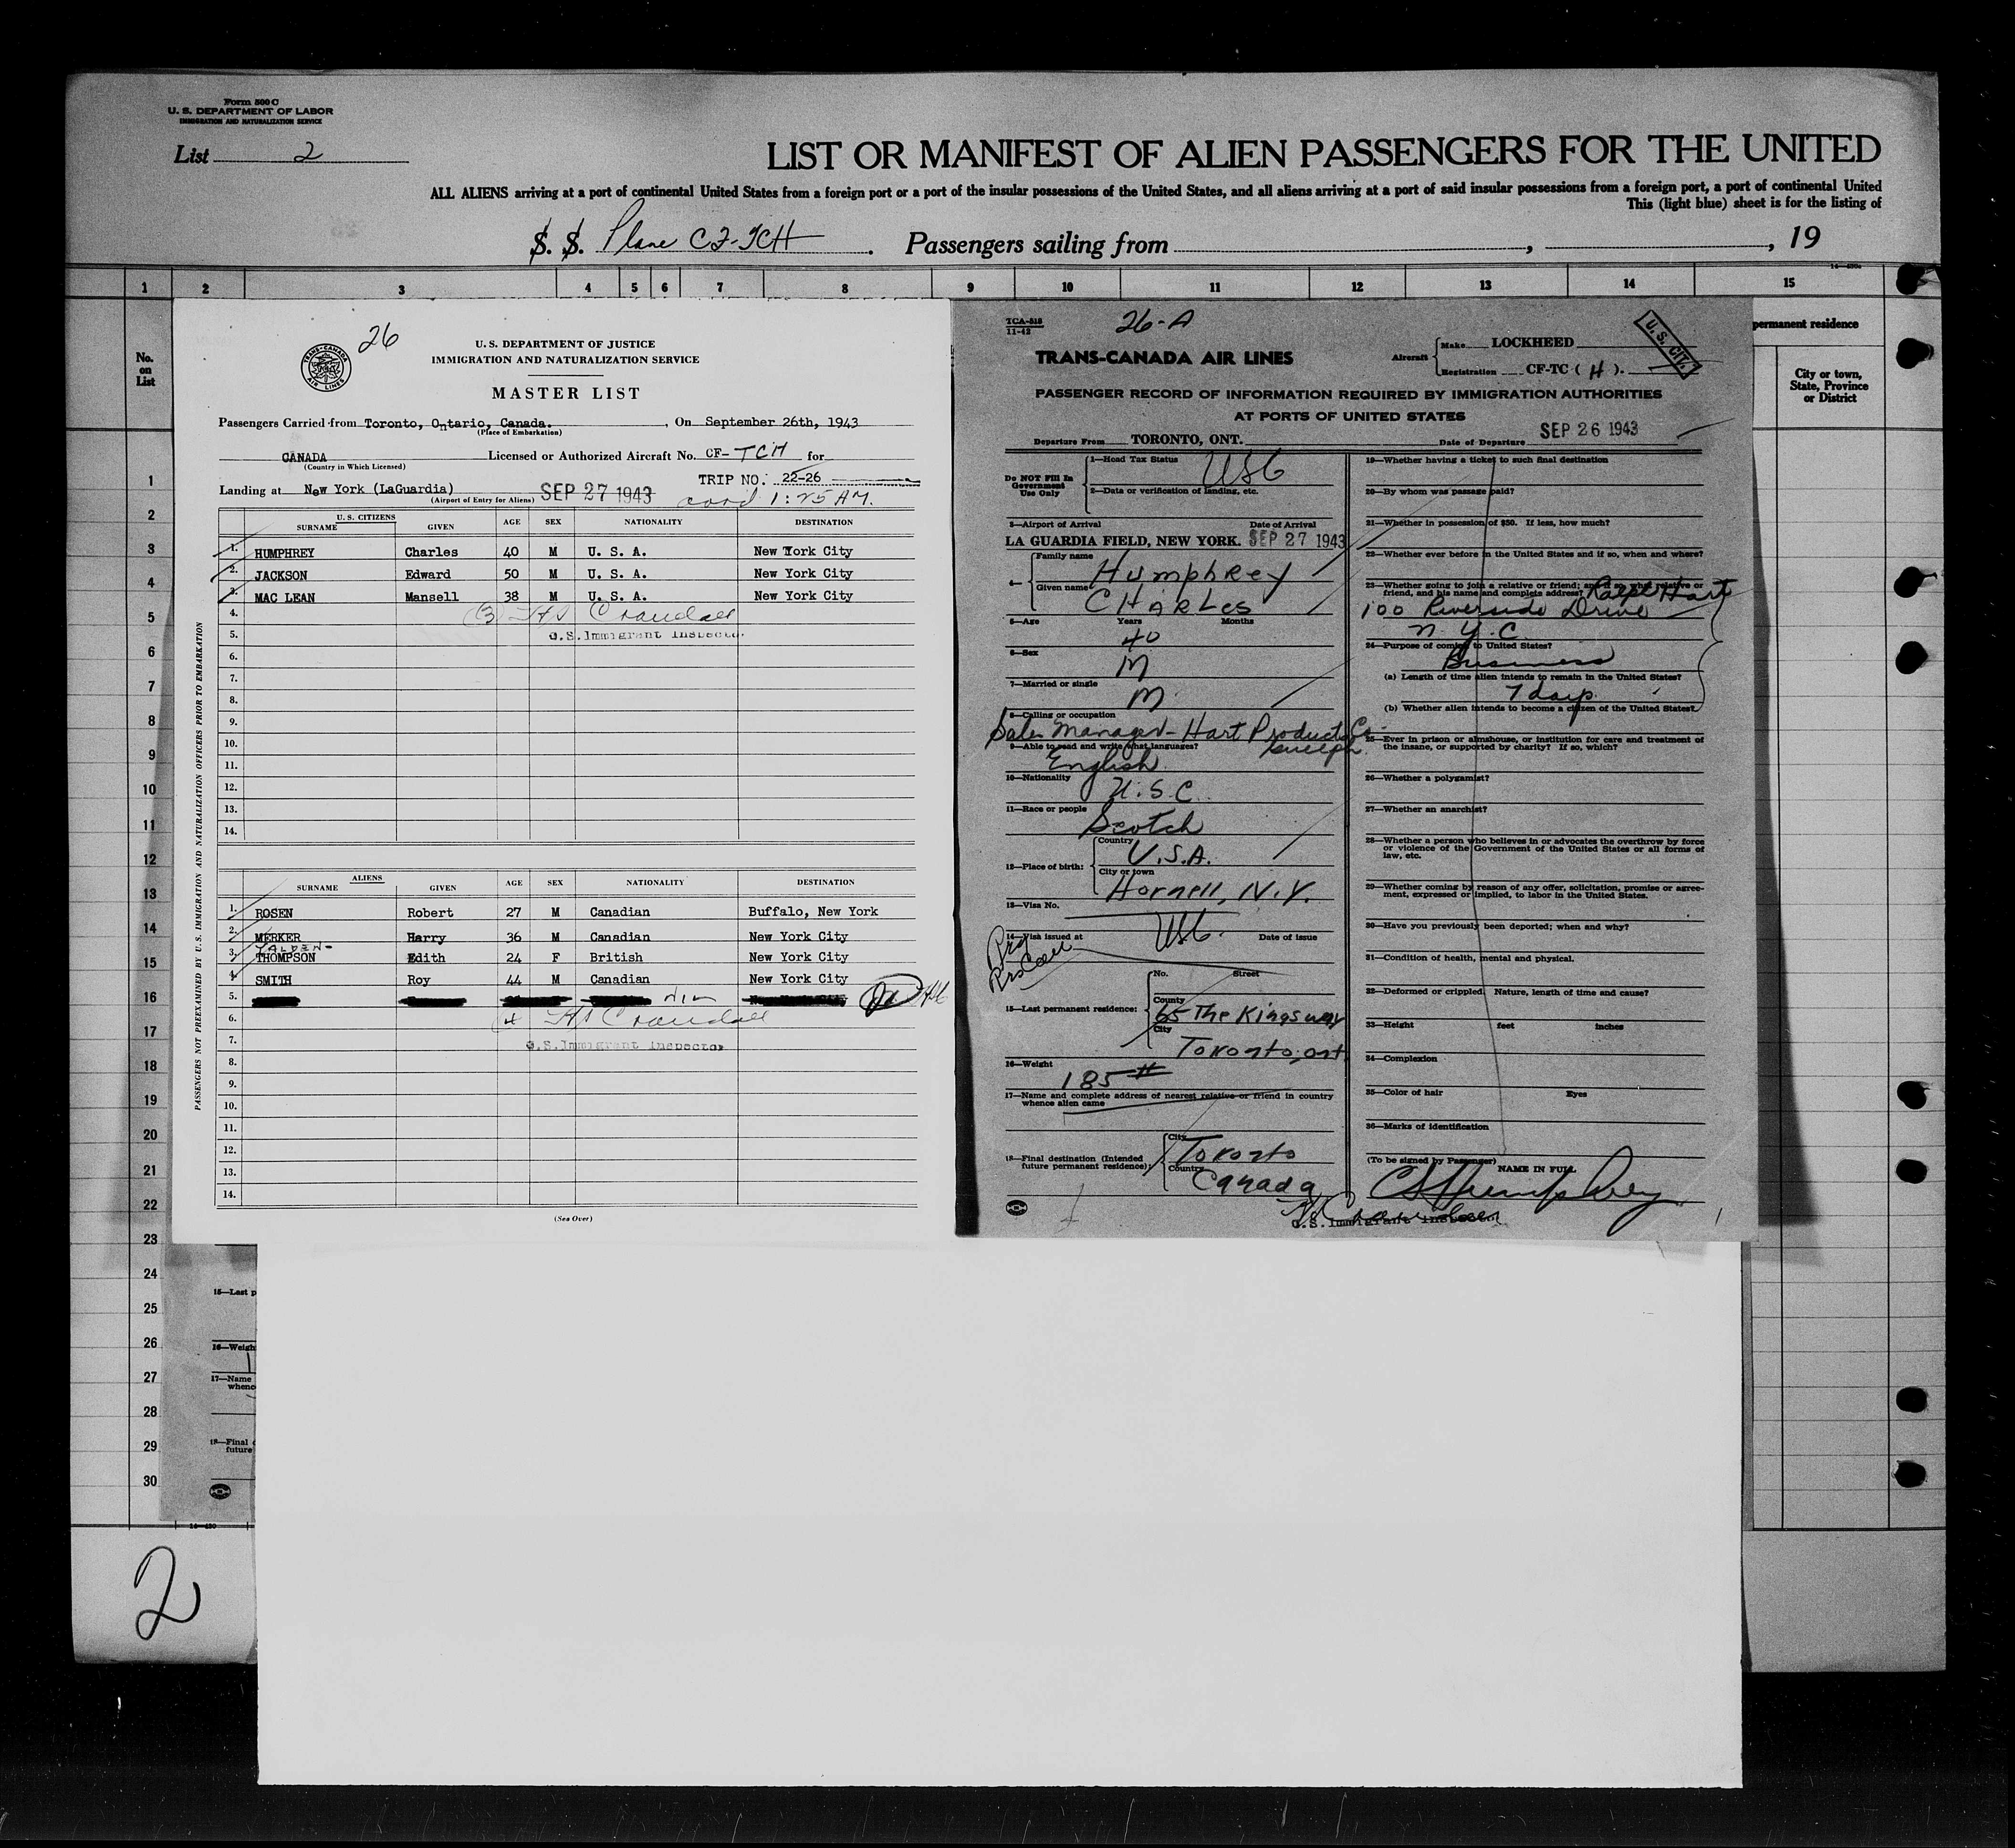 Form 500 C
U. S. DEPARTMENT OF LABOR
IMMIGRATION AND NATURALIZATION SERVICE
List 2
LIST OR MANIFEST OF ALIEN PASSENGERS FOR THE UNITED
ALL ALIENS arriving at a port of continental United States from a foreign port or a port of the insular possessions of the United States, and all aliens arriving at a port of said insular possessions from a foreign port, a port of continental United
This (light blue) sheet is for the listing of
S. S. Plane CF-TCH. Passengers sailing from , , 19
1 2 3 4 5 6 7 8 9 10 11 12 13 14 15
No. on List
permanent residence
City or town, State, Province or District
1
2
3
4
5
6
7
8
9
10
11
12
13
14
15
16
17
18
19
20
21
22
23
24
25
26
27
28
29
30
26
TRANS-CANADA AIR LINES
U. S. DEPARTMENT OF JUSTICE
IMMIGRATION AND NATURALIZATION SERVICE
MASTER LIST
Passengers Carried from Toronto, Ontario, Canada. , On September 26th, 1943
(Place of Embarkation)
CANADA Licensed or Authorized Aircraft No. CF-TCH for
(Country in Which Licensed)
TRIP NO. 22-26
Landing at New York (LaGuardia) SEP 27 1943 1:25 AM.
(Airport of Entry for Aliens)
U. S. CITIZENS
SURNAME GIVEN AGE SEX NATIONALITY DESTINATION
1. HUMPHREY Charles 40 M U. S. A. New York City
2. JACKSON Edward 50 M U. S. A. New York City
3. MAC LEAN Mansell 38 M U. S. A. New York City
4. (3) Crandall
5. U.S. Immigrant Inspector.
6.
7.
8.
9.
10.
11.
12.
13.
14.
ALIENS
SURNAME GIVEN AGE SEX NATIONALITY DESTINATION
1. ROSEN Robert 27 M Canadian Buffalo, New York
2. MERKER Harry 36 M Canadian New York City
YALDEN-
3. THOMPSON Edith 24 F British New York City
4. SMITH Roy 44 M Canadian New York City
5.
6. Crandall
7. U.S. Immigrant Inspector
8.
9.
10.
11.
12.
13.
14.
(See Over)
PASSENGERS NOT PREEXAMINED BY U. S. IMMIGRATION AND NATURALIZATION OFFICERS PRIOR TO EMBARKATION
TCA-518
11-42
26-A
U. S. CIT.
TRANS-CANADA AIR LINES
Aircraft Make LOCKHEED
Registration CF-TC ( H ).
PASSENGER RECORD OF INFORMATION REQUIRED BY IMMIGRATION AUTHORITIES
AT PORTS OF UNITED STATES
Departure From TORONTO, ONT. Date of Departure SEP 26 1943
Do NOT Fill In Government Use Only
1—Head Tax Status USC
2—Data or verification of landing, etc.
3—Airport of Arrival Date of Arrival
LA GUARDIA FIELD, NEW YORK. SEP 27 1943
4— Family name Humphrey
Given name CHARLES
5—Age Years Months
40
6—Sex M
7—Married or single M
8—Calling or occupation
Sales Manager - Hart Products Co
Guelph
9—Able to read and write what languages?
English
10—Nationality U.S.C.
11—Race or people Scotch
12—Place of birth: Country U.S.A.
City or town Hornell, N.Y.
13—Visa No.
14—Visa issued at USC. Date of issue
15—Last permanent residence: No. Street
County
65 The Kingsway
City
Toronto, ont
16—Weight 185 #
17—Name and complete address of nearest relative or friend in country
whence alien came
18—Final destination (Intended future permanent residence): City Toronto
Country Canada
19—Whether having a ticket to such final destination
20—By whom was passage paid?
21—Whether in possession of $50. If less, how much?
22—Whether ever before in the United States and if so, when and where?
23—Whether going to join a relative or friend; and if so, what relative or
friend, and his name and complete address? Ralph Hart
100 Riverside Drive
N.Y.C.
24—Purpose of coming to United States?
Business
(a) Length of time alien intends to remain in the United States?
7 days
(b) Whether alien intends to become a citizen of the United States?
25—Ever in prison or almshouse, or institution for care and treatment of
the insane, or supported by charity? If so, which?
26—Whether a polygamist?
27—Whether an anarchist?
28—Whether a person who believes in or advocates the overthrow by force
or violence of the Government of the United States or all forms of
law, etc.
29—Whether coming by reason of any offer, solicitation, promise or agree-
ment, expressed or implied, to labor in the United States.
30—Have you previously been deported; when and why?
31—Condition of health, mental and physical.
32—Deformed or crippled. Nature, length of time and cause?
33—Height feet inches
34—Complexion
35—Color of hair Eyes
36—Marks of identification
(To be signed by Passenger) NAME IN FULL
CSHumphrey
U.S. Immigrant Inspector
15—Last p
16—Weigh
17—Name
whenc
18—Final
future
14—430
2